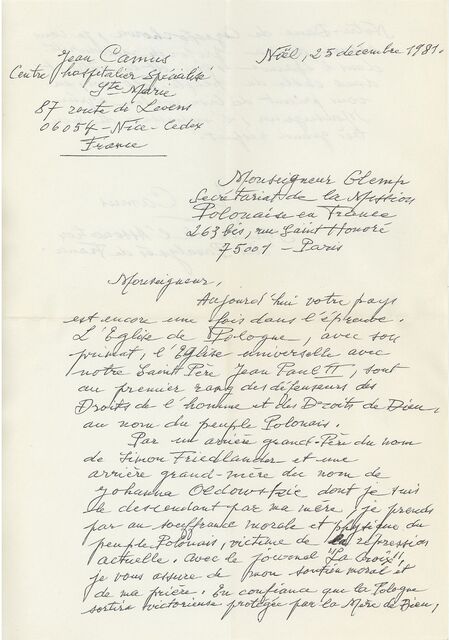 Jean Camus
Centre hospitalier Spécialisé
Ste Marie
87 route de Levens
06054 - Nice Cedex
France
Noël, 25 décembre 1981.
Monseigneur Glemp
Secrétariat de la Mission
Polonaise en France
263 bis, rue Saint Honoré
75001 - Paris
Monseigneur,
Aujourd'hui votre pays
est encore une fois dans l'épreuve.
L'Eglise de Pologne, avec son
primat, l'Eglise universelle avec
notre Saint Père Jean Paul II, sont
au premier rang des défenseurs des
Droits de l'homme et des Droits de Dieu,
au nom du peuple Polonais.
Par un arrière grand-Père du nom
de Simon Friedlander et une
arrière grand-mère du nom de
Johanna dont je suis
le descendant par ma mère, je prends
part au souffrance morale et physique du
peuple Polonais, victime de la répression
actuelle. Avec le journal "La Croix",
je vous assure de mon soutien moral et
de ma prière. En confiance que la Pologne
sortira victorieuse protégée par la Mère de Dieu,